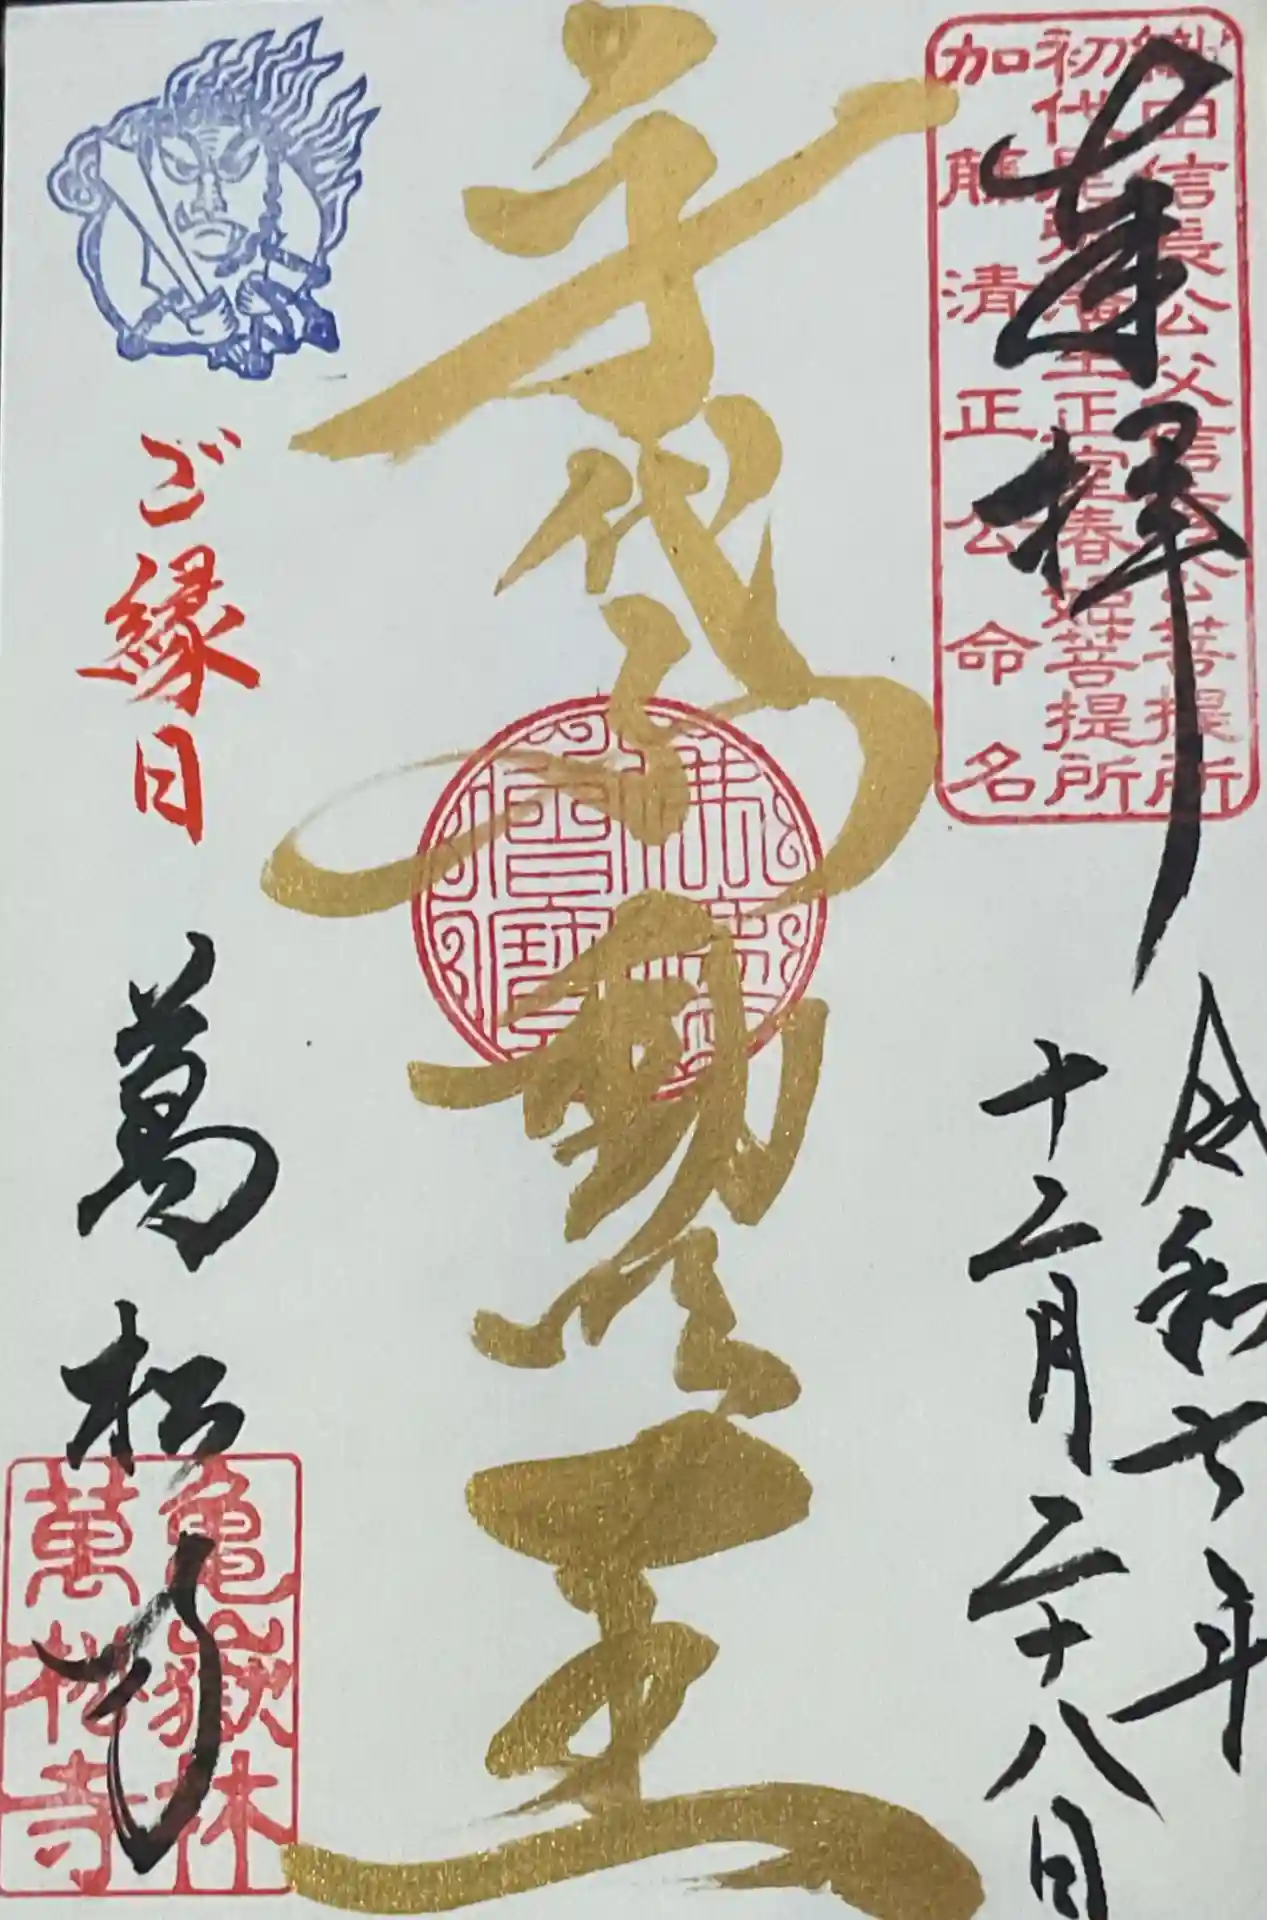 奉拝
織田信長公父信秀公菩提所
初代尾張藩主正室春姫菩提所
加藤清正公命名
令和六年
十二月二十八日
身代不動明王
佛法
僧寶
ご縁日
萬松寺
亀嶽林
萬松寺